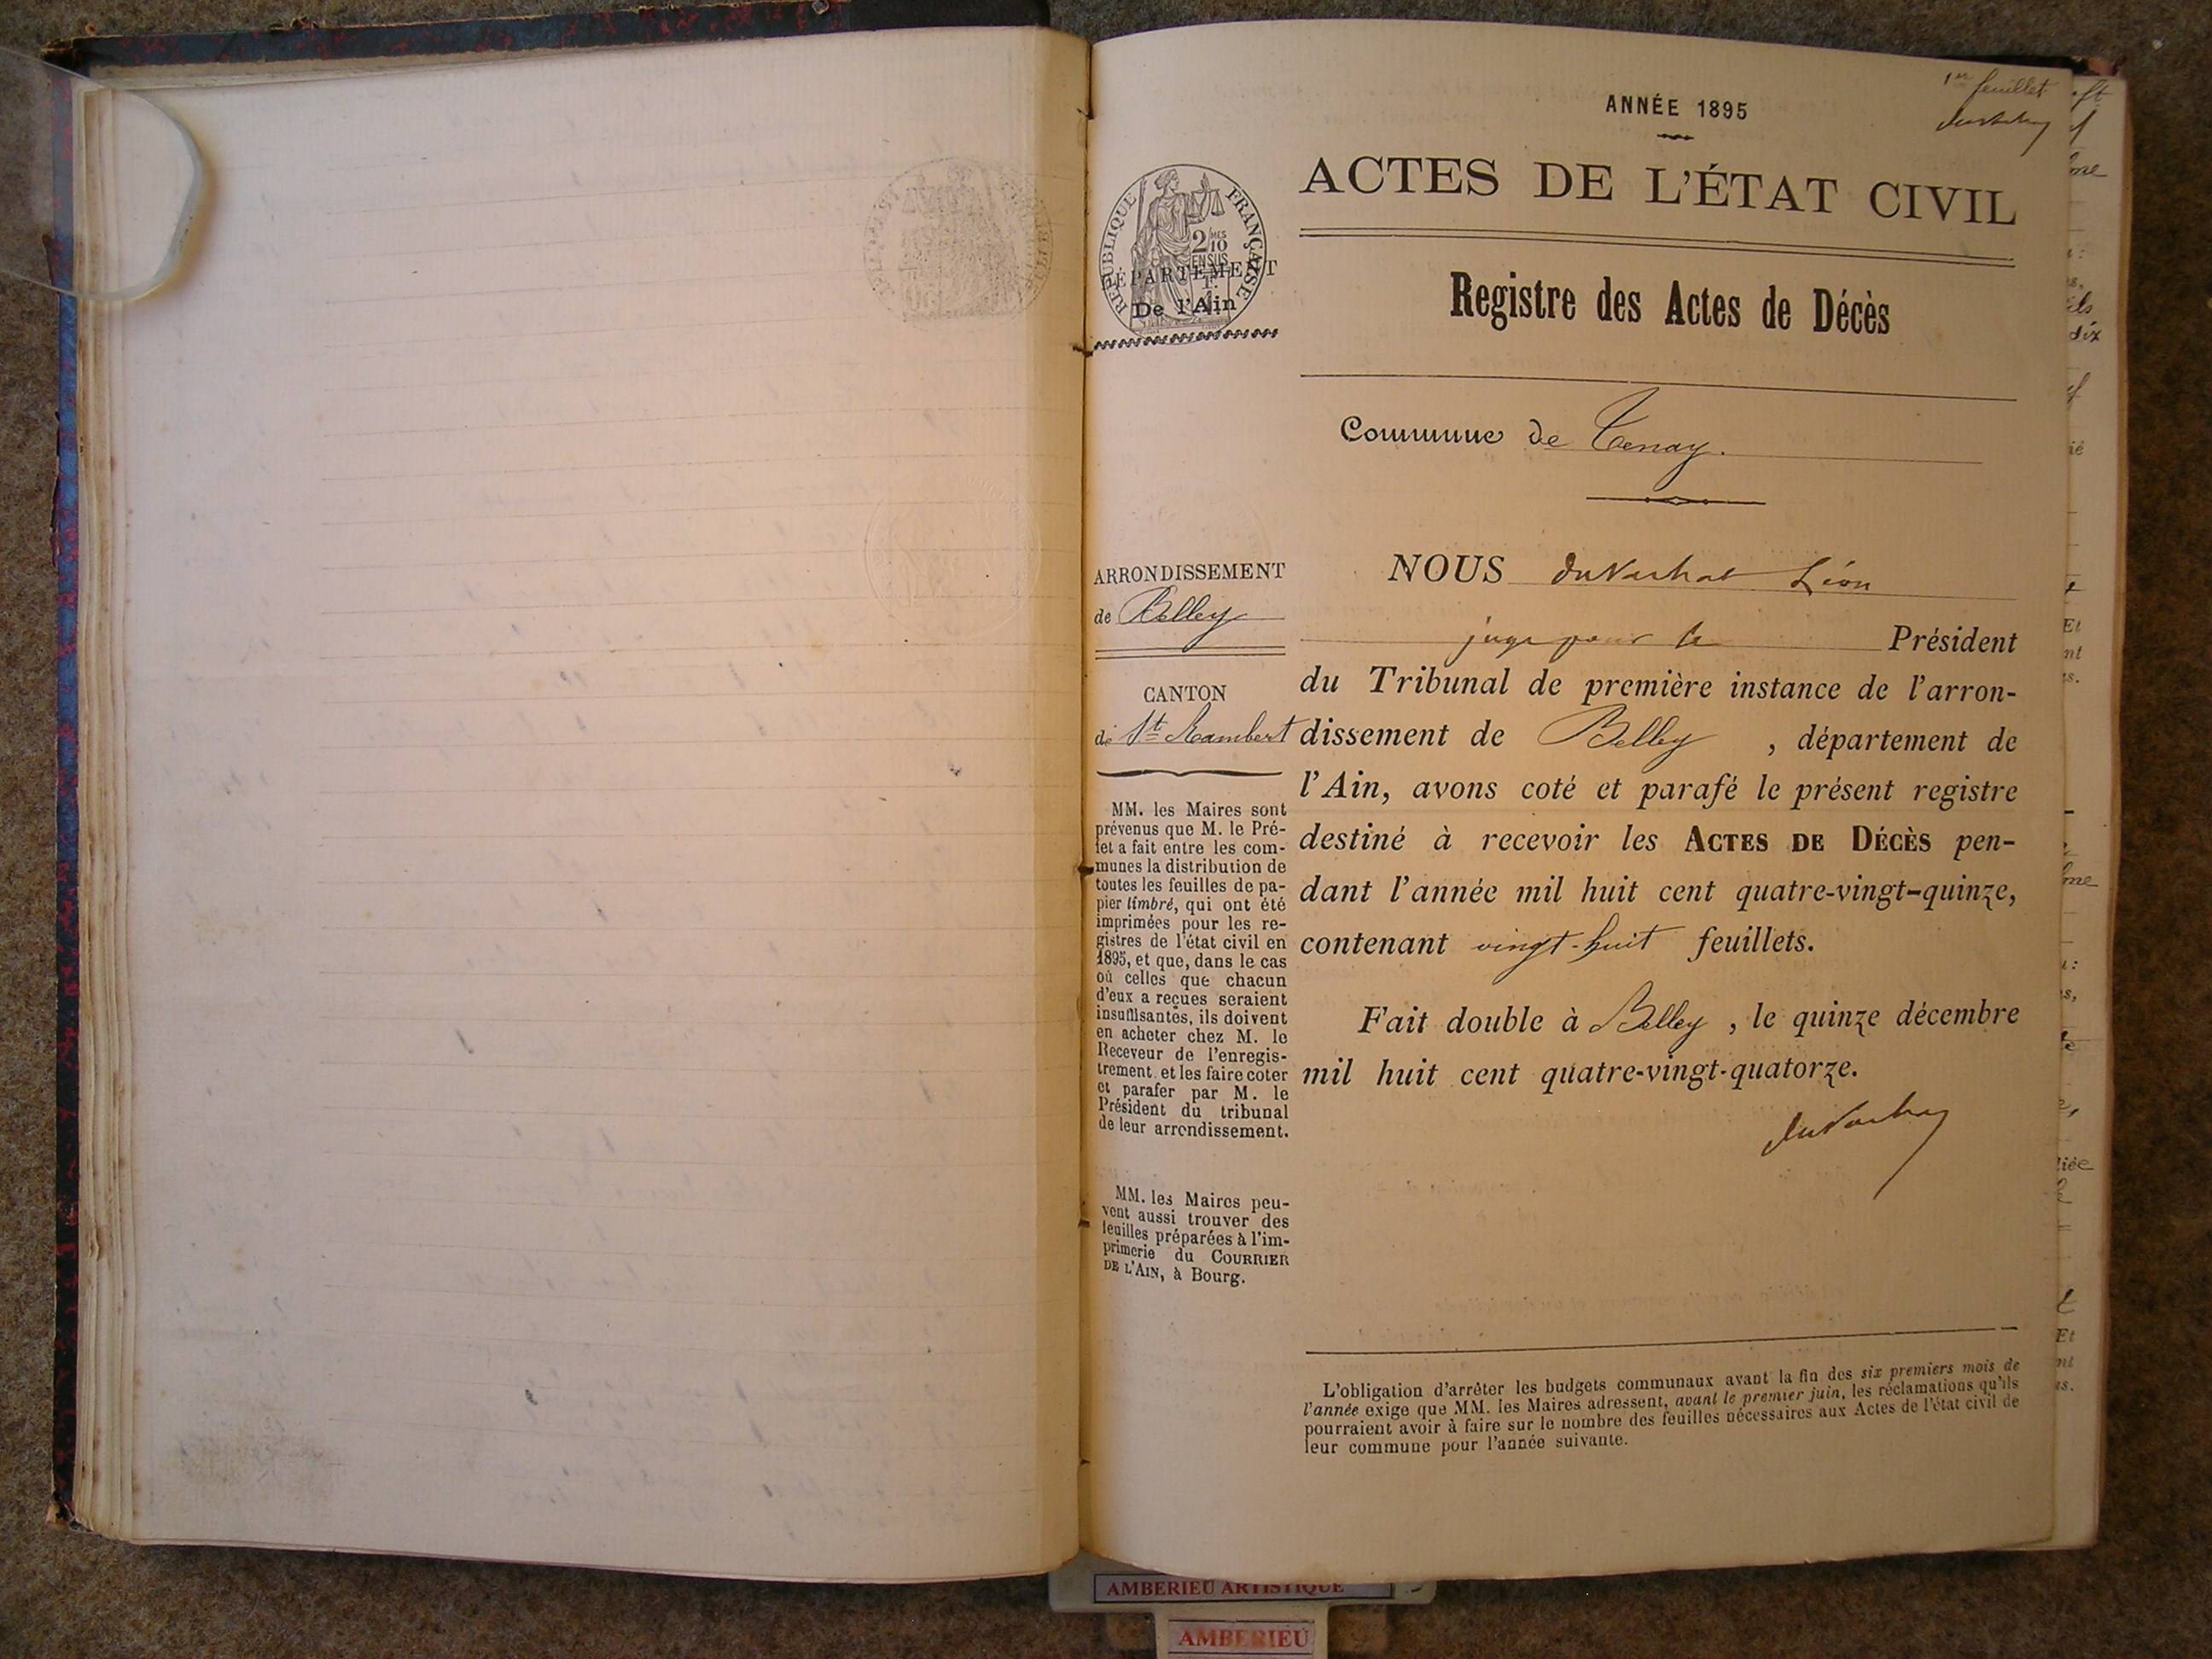 1er feuillet
ANNÉE 1895
ACTES DE L'ÉTAT CIVIL
RÉPUBLIQUE FRANÇAISE
2/10 MES
EN SUS
DÉPARTEMENT
De l'Ain
Registre des Actes de Décès
Commune de Tenay.
ARRONDISSEMENT
de Belley
CANTON
de St Rambert
MM. les Maires sont
prévenus que M. le Pré-
fet a fait entre les com-
munes la distribution de
toutes les feuilles de pa-
pier timbré, qui ont été
imprimées pour les re-
gistres de l'état civil en
1895, et que, dans le cas
où celles que chacun
d'eux a reçues seraient
insuffisantes, ils doivent
en acheter chez M. le
Receveur de l'enregis-
trement et les faire coter
et parafer par M. le
Président du tribunal
de leur arrondissement.
MM. les Maires peu-
vent aussi trouver des
feuilles préparées à l'im-
primerie du COURRIER
DE L'AIN, à Bourg.
NOUS Léon
juge pour le Président
du Tribunal de première instance de l'arron-
dissement de Belley , département de
l'Ain, avons coté et parafé le présent registre
destiné à recevoir les ACTES DE DÉCÈS pen-
dant l'année mil huit cent quatre-vingt-quinze,
contenant vingt-huit feuillets.
Fait double à Belley , le quinze décembre
mil huit cent quatre-vingt-quatorze.
L'obligation d'arrêter les budgets communaux avant la fin des six premiers mois de
l'année exige que MM. les Maires adressent, avant le premier juin, les réclamations qu'ils
pourraient avoir à faire sur le nombre des feuilles nécessaires aux Actes de l'état civil de
leur commune pour l'année suivante.
AMBERIEU ARTISTIQUE
AMBERIEU